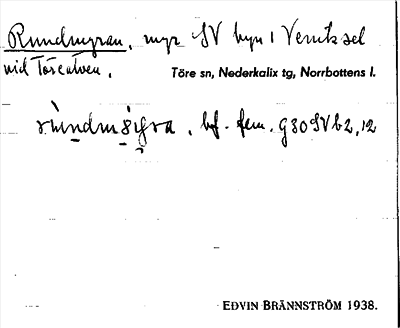 Rundmyran, myr SV byn i Vånnäsel
vid Töreälven.
Töre sn, Nederkalix tg, Norrbottens l.
bf. fem. G30SVb2,12
EDVIN BRÄNNSTRÖM 1938.